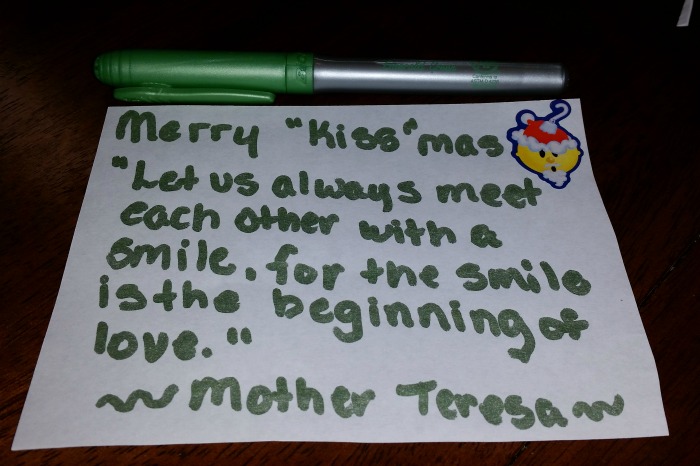 Merry "Kiss"mas
"Let us always meet
each other with a
smile, for the smile
is the beginning of
love."
~Mother Teresa~